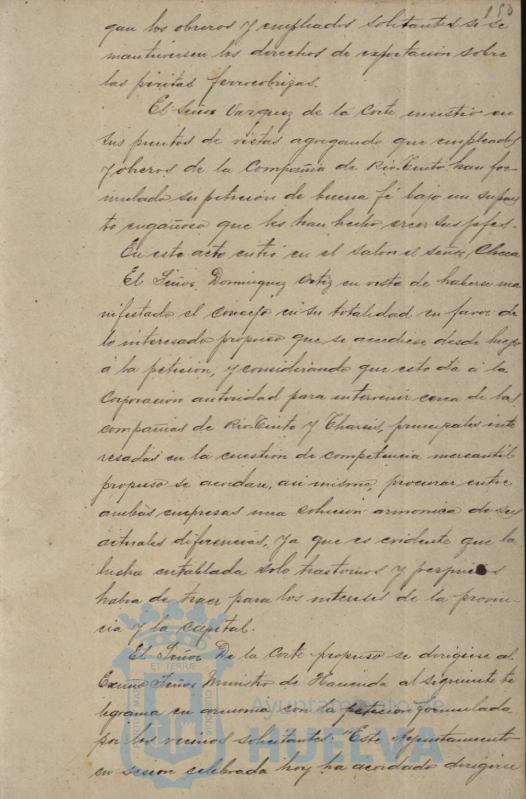 150
gan los obreros y empleados solicitantes si se
mantuviesen los derechos de exportación sobre
las piritas ferrocobrizas.
El Señor Vazquez de la Corte insistió en
sus puntos de vistas agregando que empleados
y obreros de la Compañia de Rio-Tinto han for-
mulado su petición de buena fé bajo un supues
to engañoso que les han hecho creer sus jefes.
En este acto entró en el salon el señor Checa
El Señor Dominguez Ortiz en vista de haberse ma
nifestado el concejo en su totalidad en favor de
lo interesado propuso que se accediese desde luego
á la petición, y considerando que esto dá á la
Corporación autoridad para intervenir cerca de las
compañias de Rio-Tinto y Tharsis, principales inte
resadas en la cuestión de competencia mercantil
propuso se acordara, asi mismo, procurar entre
ambas empresas una solución armonica de sus
actuales diferencias, ya que es evidente que la
lucha entablada solo trastornos y perjuicios
habia de traer para los intereses de la provin-
cia y la capital.
El Señor De la Corte propuso se dirigiese al
Excmo Señor Ministro de Hacienda el siguiente te
legrama en armonia con la petición formulada
por los vecinos solicitantes. "Este Ayuntamiento
en sesion celebrada hoy ha acordado dirigirse
Ayuntamiento de
HUELVA